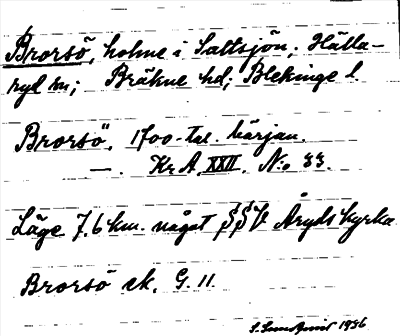 Brorsö, holme i Saltsjön; Hälla-
ryd sn; Bräkne hd; Blekinge l.
Brorsö", 1700-tal. början.
— . Kr. A. XXII. N:o 33.
Läge 7,6 km. något SSV Åryds kyrka
Brorsö ek. G. 11.
S. Sundquist 1936